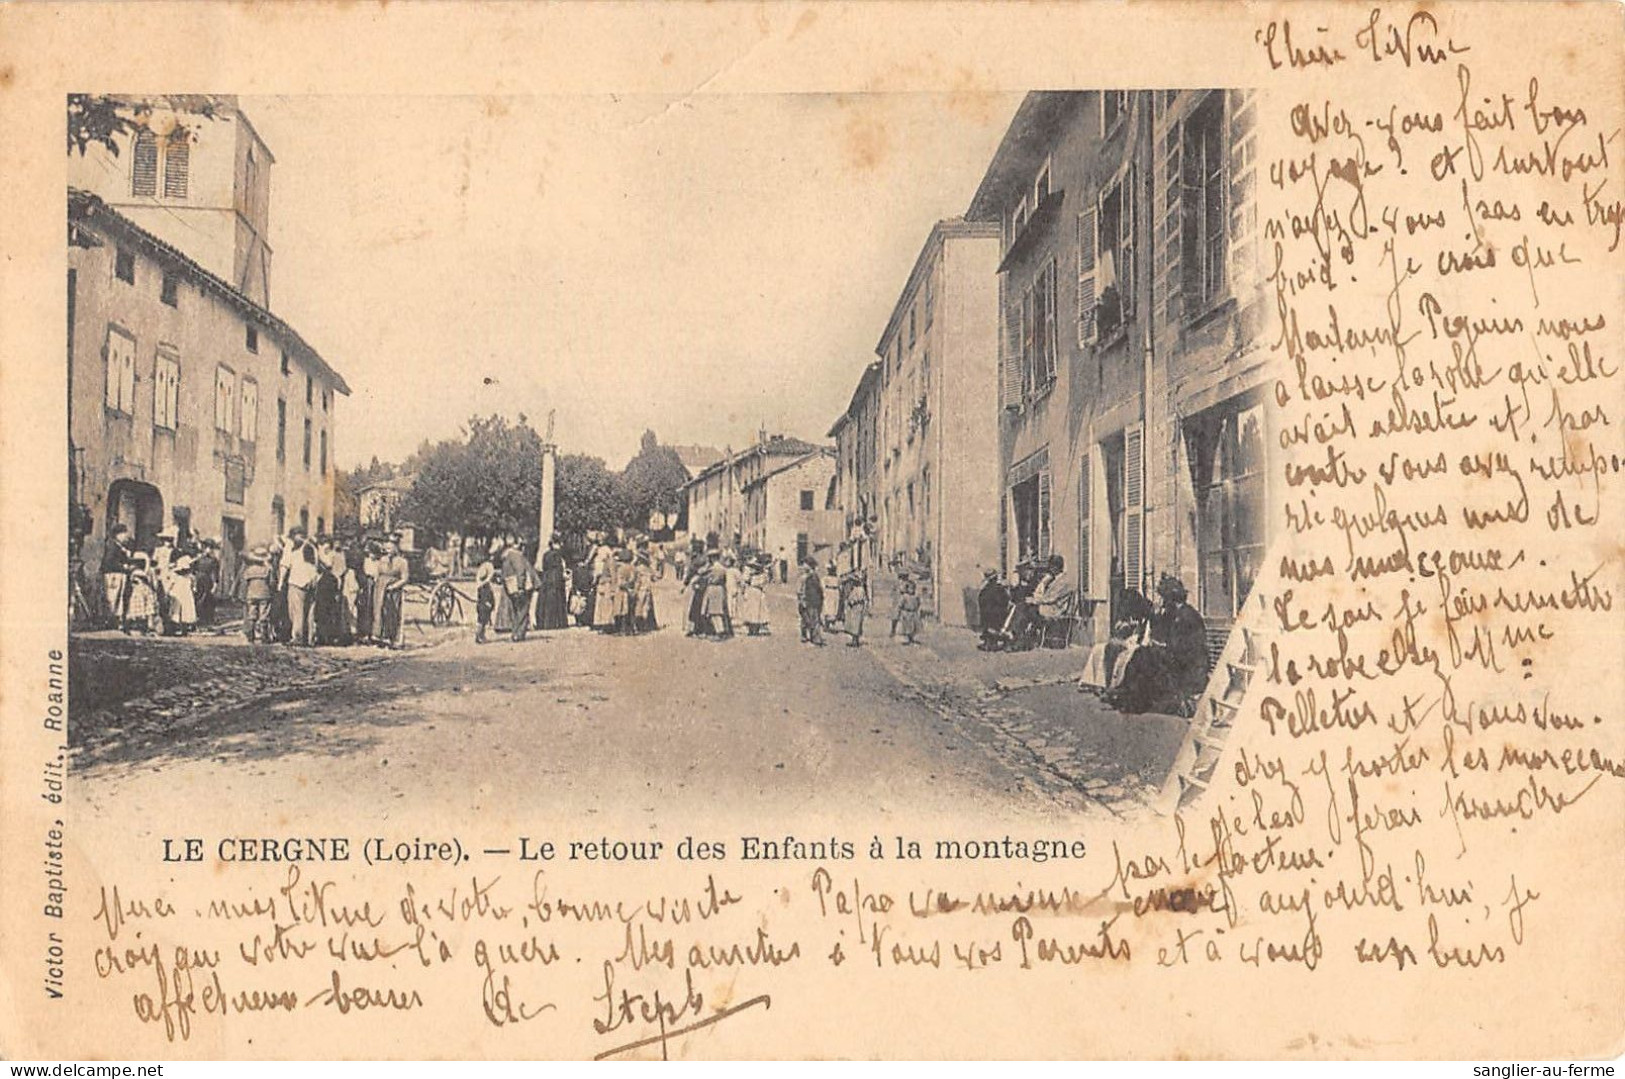 Chère Titine
Avez-vous fait bon
voyage? et surtout
n'avez-vous pas eu trop
froid? Je crois que
Madame Pequin nous
a laissé la robe qu'elle
avait achetée et, par
contre vous avez rempor-
té quelques uns de
nos morceaux.
Ce soir je fais remettre
la robe chez Mme
Pelletier et vous vou-
drez y porter les morceaux
je les ferai prendre
par le facteur.
LE CERGNE (Loire). — Le retour des Enfants à la montagne
Victor Baptiste, édit., Roanne
Merci, Titine de votre bonne visite. Papa va mieux aujourd'hui, je
crois que votre vue l'a guéri. Mes amitiés à tous vos Parents et à vous un bien
affectueux baiser de Steph
Victor Baptiste, édit., Roanne
sanglier-au-ferme